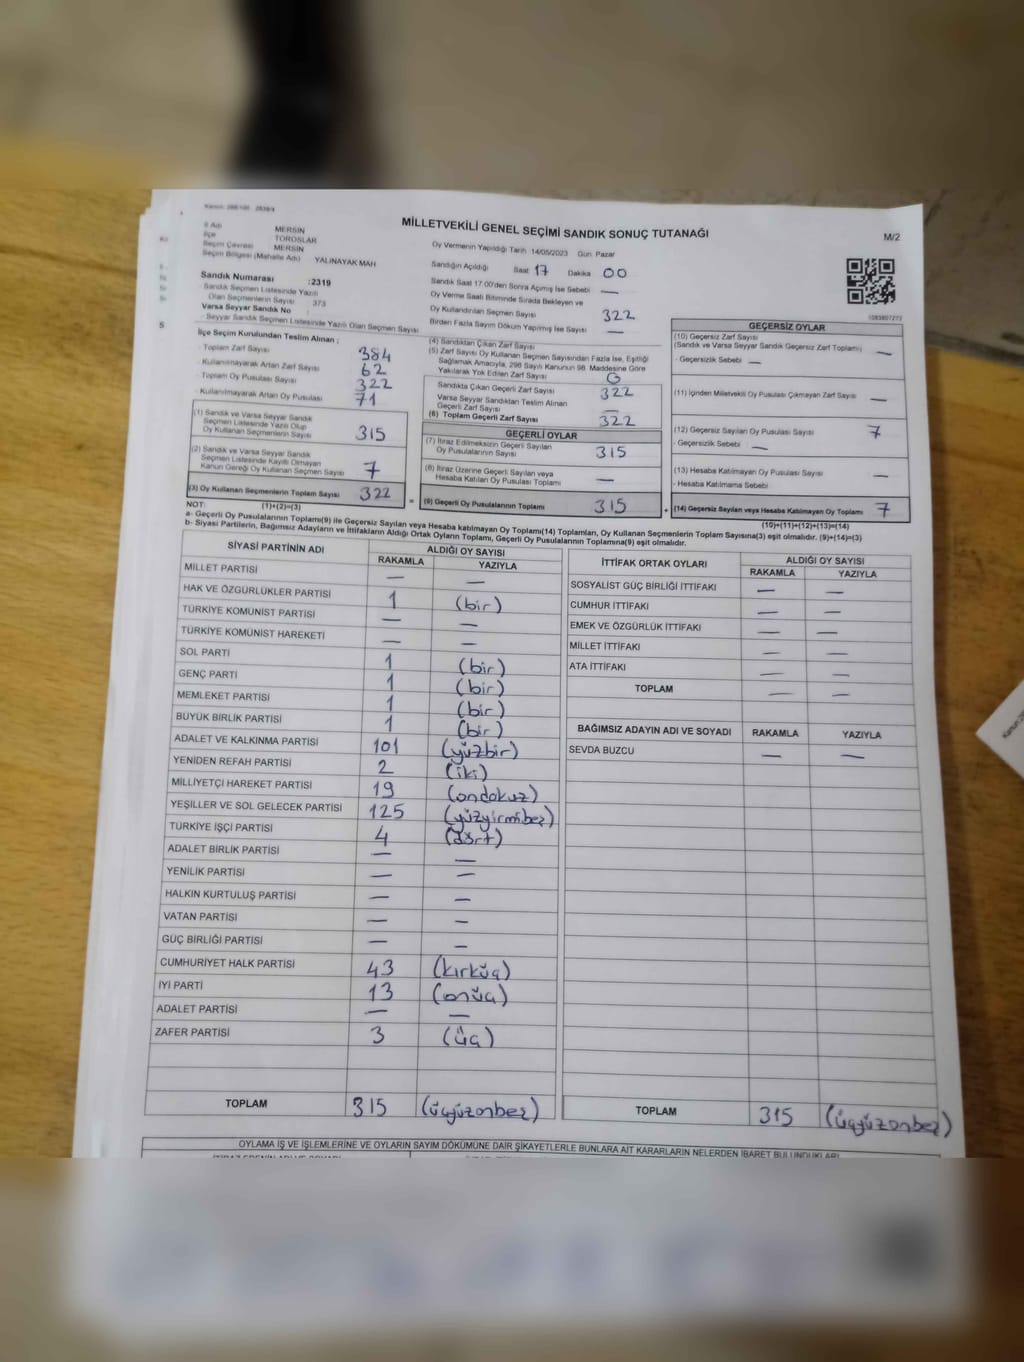 MİLLETVEKİLİ GENEL SEÇİMİ SANDIK SONUÇ TUTANAĞI
M/2
İl Adı MERSİN
İlçe TOROSLAR
Seçim Çevresi MERSİN
Seçim Bölgesi (Mahalle Adı) YALINAYAK MAH
Sandık Numarası :2319
Sandık Seçmen Listesinde Yazılı
Olan Seçmenlerin Sayısı 373
Varsa Seyyar Sandık No :
- Seyyar Sandık Seçmen Listesinde Yazılı Olan Seçmen Sayısı
Oy Vermenin Yapıldığı Tarih 14/05/2023 Gün Pazar
Sandığın Açıldığı Saat 17 Dakika 00
Sandık Saat 17.00'den Sonra Açılmış İse Sebebi —
Oy Verme Saati Bitiminde Sırada Bekleyen ve
Oy Kullandırılan Seçmen Sayısı 322
Birden Fazla Sayım Döküm Yapılmış İse Sayısı —
1083807273
İlçe Seçim Kurulundan Teslim Alınan ;
- Toplam Zarf Sayısı 384
- Kullanılmayarak Artan Zarf Sayısı 62
- Toplam Oy Pusulası Sayısı 322
- Kullanılmayarak Artan Oy Pusulası 71
(1) Sandık ve Varsa Seyyar Sandık
Seçmen Listesinde Yazılı Olup
Oy Kullanan Seçmenlerin Sayısı 315
(2) Sandık ve Varsa Seyyar Sandık
Seçmen Listesinde Kayıtlı Olmayan
Kanun Gereği Oy Kullanan Seçmen Sayısı 7
(3) Oy Kullanan Seçmenlerin Toplam Sayısı 322
(1)+(2)=(3)
(4) Sandıktan Çıkan Zarf Sayısı
(5) Zarf Sayısı Oy Kullanan Seçmen Sayısından Fazla İse, Eşitliği
Sağlamak Amacıyla, 298 Sayılı Kanunun 98. Maddesine Göre
Yakılarak Yok Edilen Zarf Sayısı
Sandıkta Çıkan Geçerli Zarf Sayısı 322
Varsa Seyyar Sandıktan Teslim Alınan
Geçerli Zarf Sayısı —
(6) Toplam Geçerli Zarf Sayısı 322
GEÇERLİ OYLAR
(7) İtiraz Edilmeksizin Geçerli Sayılan
Oy Pusulalarının Sayısı 315
(8) İtiraz Üzerine Geçerli Sayılan veya
Hesaba Katılan Oy Pusulası Toplamı —
= (9) Geçerli Oy Pusulalarının Toplamı 315
GEÇERSİZ OYLAR
(10) Geçersiz Zarf Sayısı
(Sandık ve Varsa Seyyar Sandık Geçersiz Zarf Toplamı) —
- Geçersizlik Sebebi —
(11) İçinden Milletvekili Oy Pusulası Çıkmayan Zarf Sayısı —
(12) Geçersiz Sayılan Oy Pusulası Sayısı 7
- Geçersizlik Sebebi —
(13) Hesaba Katılmayan Oy Pusulası Sayısı —
- Hesaba Katılmama Sebebi
+ (14) Geçersiz Sayılan veya Hesaba Katılmayan Oy Toplamı 7
(10)+(11)+(12)+(13)=(14)
NOT:
a- Geçerli Oy Pusulalarının Toplamı(9) ile Geçersiz Sayılan veya Hesaba katılmayan Oy Toplamı(14) Toplamları, Oy Kullanan Seçmenlerin Toplam Sayısına(3) eşit olmalıdır. (9)+(14)=(3)
b- Siyasi Partilerin, Bağımsız Adayların ve İttifakların Aldığı Ortak Oyların Toplamı, Geçerli Oy Pusulalarının Toplamına(9) eşit olmalıdır.
SİYASİ PARTİNİN ADI ALDIĞI OY SAYISI
RAKAMLA YAZIYLA
MİLLET PARTİSİ — —
HAK VE ÖZGÜRLÜKLER PARTİSİ 1 (bir)
TÜRKİYE KOMÜNİST PARTİSİ — —
TÜRKİYE KOMÜNİST HAREKETİ — —
SOL PARTİ 1 (bir)
GENÇ PARTİ 1 (bir)
MEMLEKET PARTİSİ 1 (bir)
BÜYÜK BİRLİK PARTİSİ 1 (bir)
ADALET VE KALKINMA PARTİSİ 101 (yüzbir)
YENİDEN REFAH PARTİSİ 2 (iki)
MİLLİYETÇİ HAREKET PARTİSİ 19 (ondokuz)
YEŞİLLER VE SOL GELECEK PARTİSİ 125 (yüzyirmibeş)
TÜRKİYE İŞÇİ PARTİSİ 4 (dört)
ADALET BİRLİK PARTİSİ — —
YENİLİK PARTİSİ — —
HALKIN KURTULUŞ PARTİSİ — —
VATAN PARTİSİ — —
GÜÇ BİRLİĞİ PARTİSİ — —
CUMHURİYET HALK PARTİSİ 43 (kırküç)
İYİ PARTİ 13 (onüç)
ADALET PARTİSİ — —
ZAFER PARTİSİ 3 (üç)
TOPLAM 315 (üçyüzonbeş)
İTTİFAK ORTAK OYLARI ALDIĞI OY SAYISI
RAKAMLA YAZIYLA
SOSYALİST GÜÇ BİRLİĞİ İTTİFAKI — —
CUMHUR İTTİFAKI — —
EMEK VE ÖZGÜRLÜK İTTİFAKI — —
MİLLET İTTİFAKI — —
ATA İTTİFAKI — —
TOPLAM — —
BAĞIMSIZ ADAYIN ADI VE SOYADI RAKAMLA YAZIYLA
SEVDA BUZCU — —
TOPLAM 315 (üçyüzonbeş)
OYLAMA İŞ VE İŞLEMLERİNE VE OYLARIN SAYIM DÖKÜMÜNE DAİR ŞİKAYETLERLE BUNLARA AİT KARARLARIN NELERDEN İBARET BULUNDUKLARI